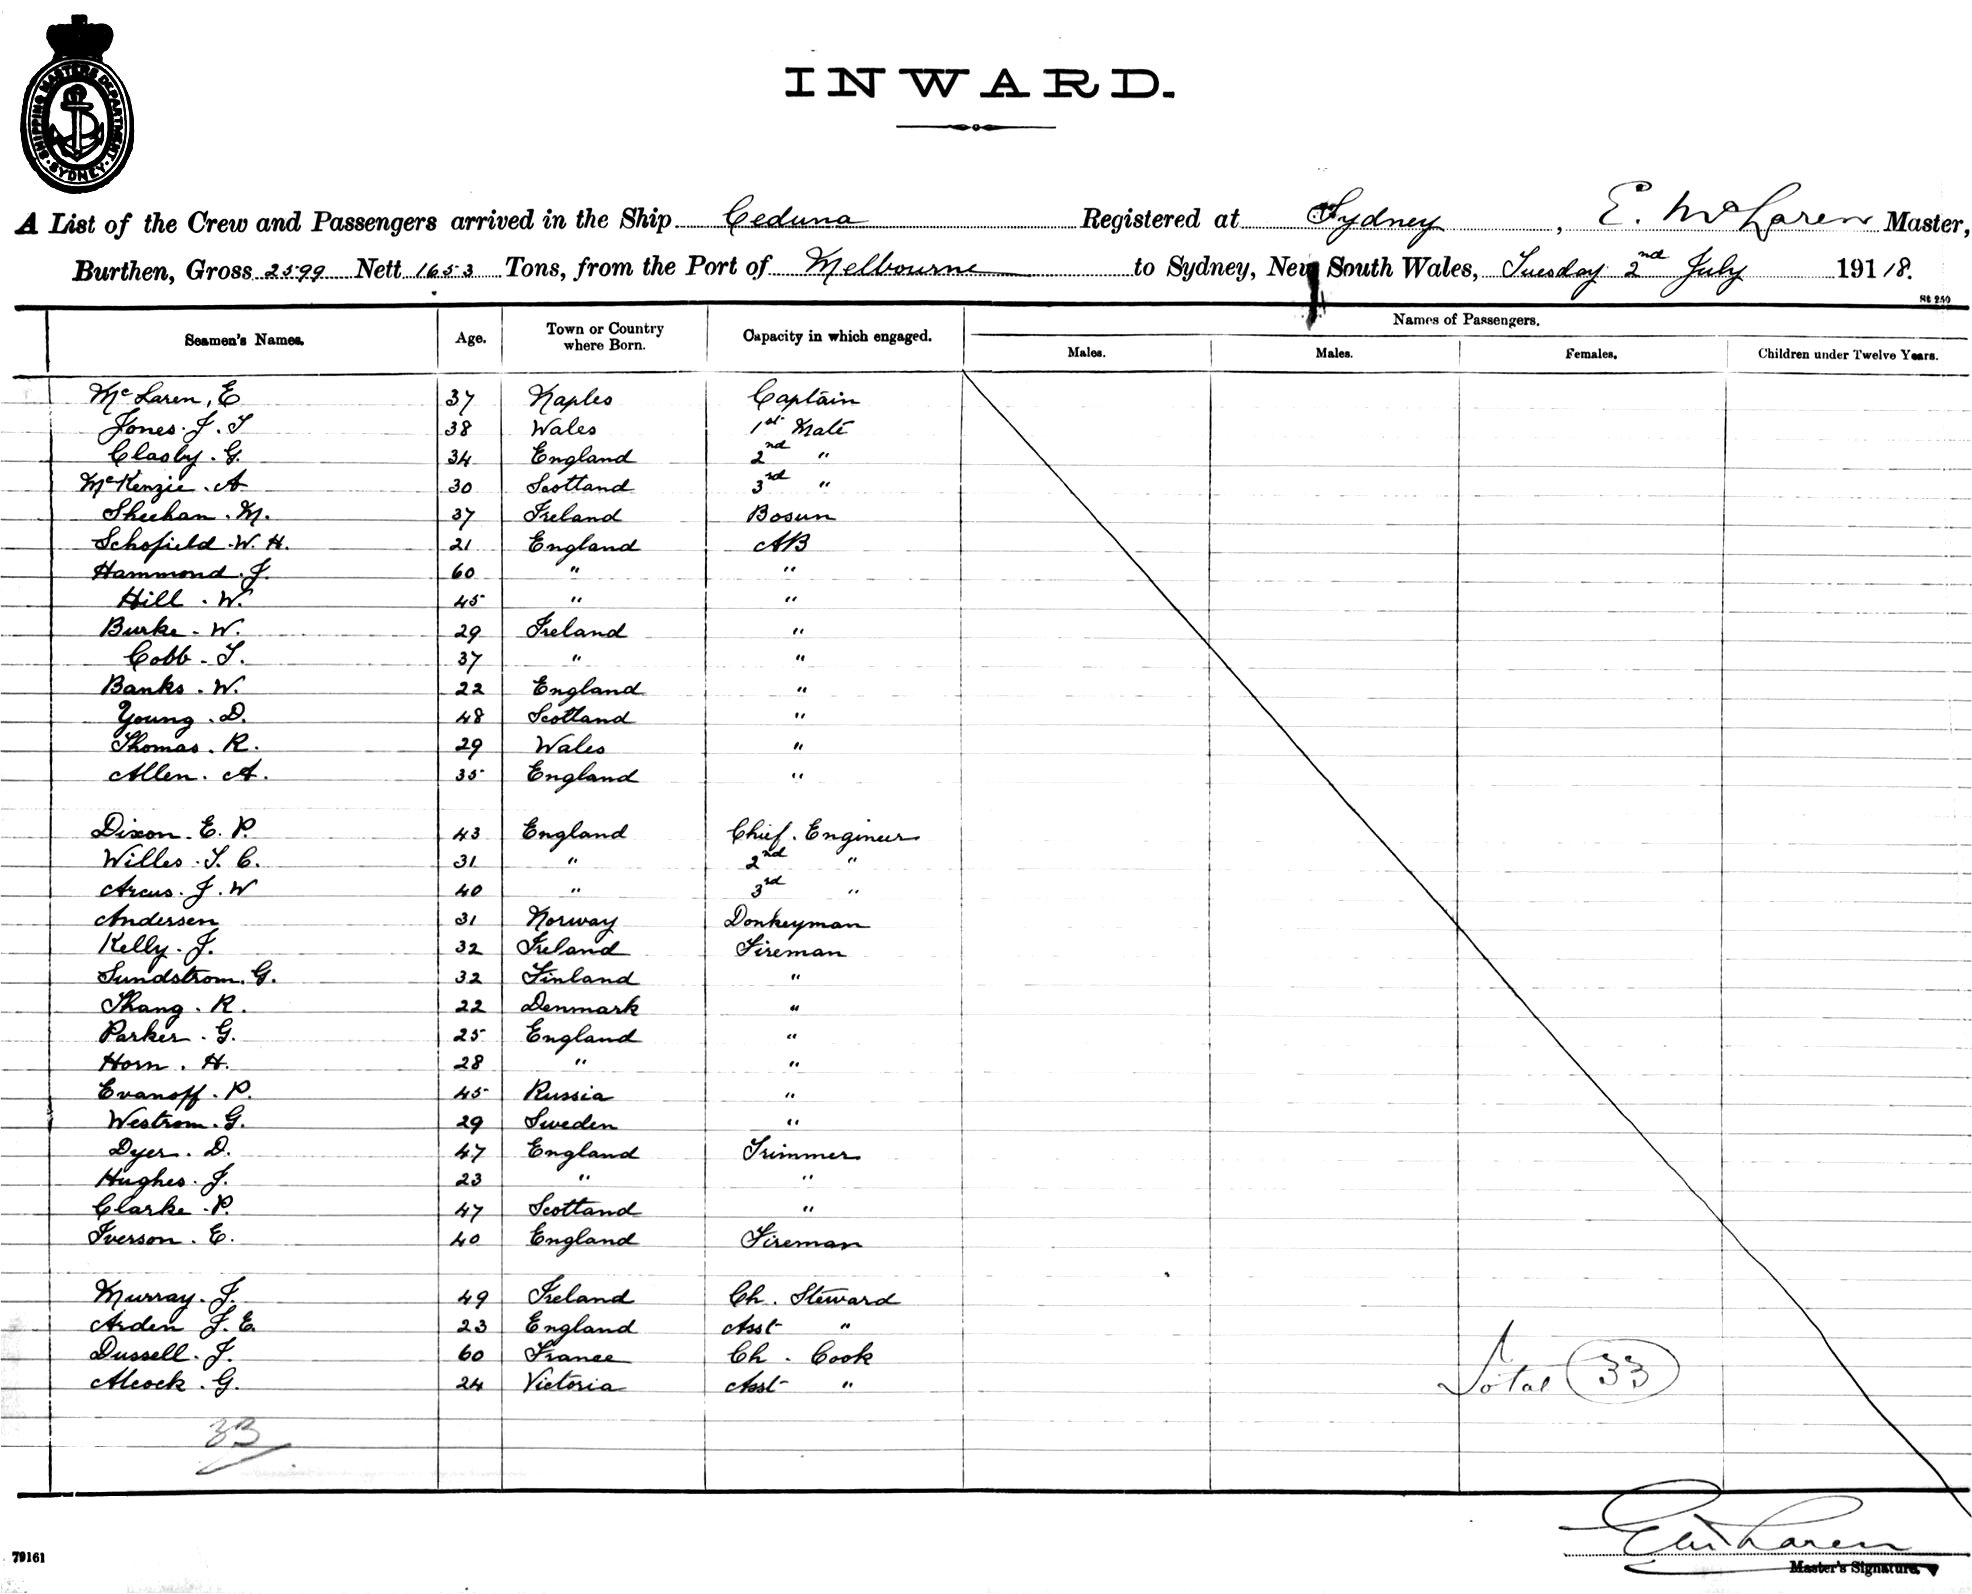 SHIPPING MASTERS DEPARTMENT · SYDNEY ·
INWARD.
A List of the Crew and Passengers arrived in the Ship Ceduna Registered at Sydney, E. McLaren Master,
Burthen, Gross 2599 Nett 1653 Tons, from the Port of Melbourne to Sydney, New South Wales, Tuesday 2nd July 191 18.
St 250
Seamen's Names. Age. Town or Country where Born. Capacity in which engaged. Names of Passengers.
Males. Males. Females. Children under Twelve Years.
McLaren, E 37 Naples Captain
Jones. J. T 38 Wales 1st Mate
Clasby. G. 34 England 2nd "
McKenzie. A 30 Scotland 3rd "
Sheehan. M. 37 Ireland Bosun
Schofield. W. H. 21 England AB
Hammond. J. 60 " "
Hill. W. 45 " "
Burke. W. 29 Ireland "
Cobb. T. 37 " "
Banks. W. 22 England "
Young. D. 48 Scotland "
Thomas. R. 29 Wales "
Allen. A. 35 England "
Dixon. E. P. 43 England Chief. Engineer
Willes. T. C. 31 " 2nd "
Arcus. J. W 40 " 3rd "
Andersen 31 Norway Donkeyman
Kelly. J. 32 Ireland Fireman
Sundstrom. G. 32 Finland "
Thang. R. 22 Denmark "
Parker. G. 25 England "
Horn. H. 28 " "
Evanoff. P. 45 Russia "
Westrom. G. 29 Sweden "
Dyer. D. 47 England Trimmer
Hughes. J. 23 " "
Clarke. P. 47 Scotland "
Iverson. E. 40 England Fireman
Murray. J. 49 Ireland Ch. Steward
Arden J. E. 23 England Asst "
Dussell. J. 60 France Ch. Cook
Alcock. G. 24 Victoria Asst "
Total 33
33
E McLaren
Master's Signature.
79161